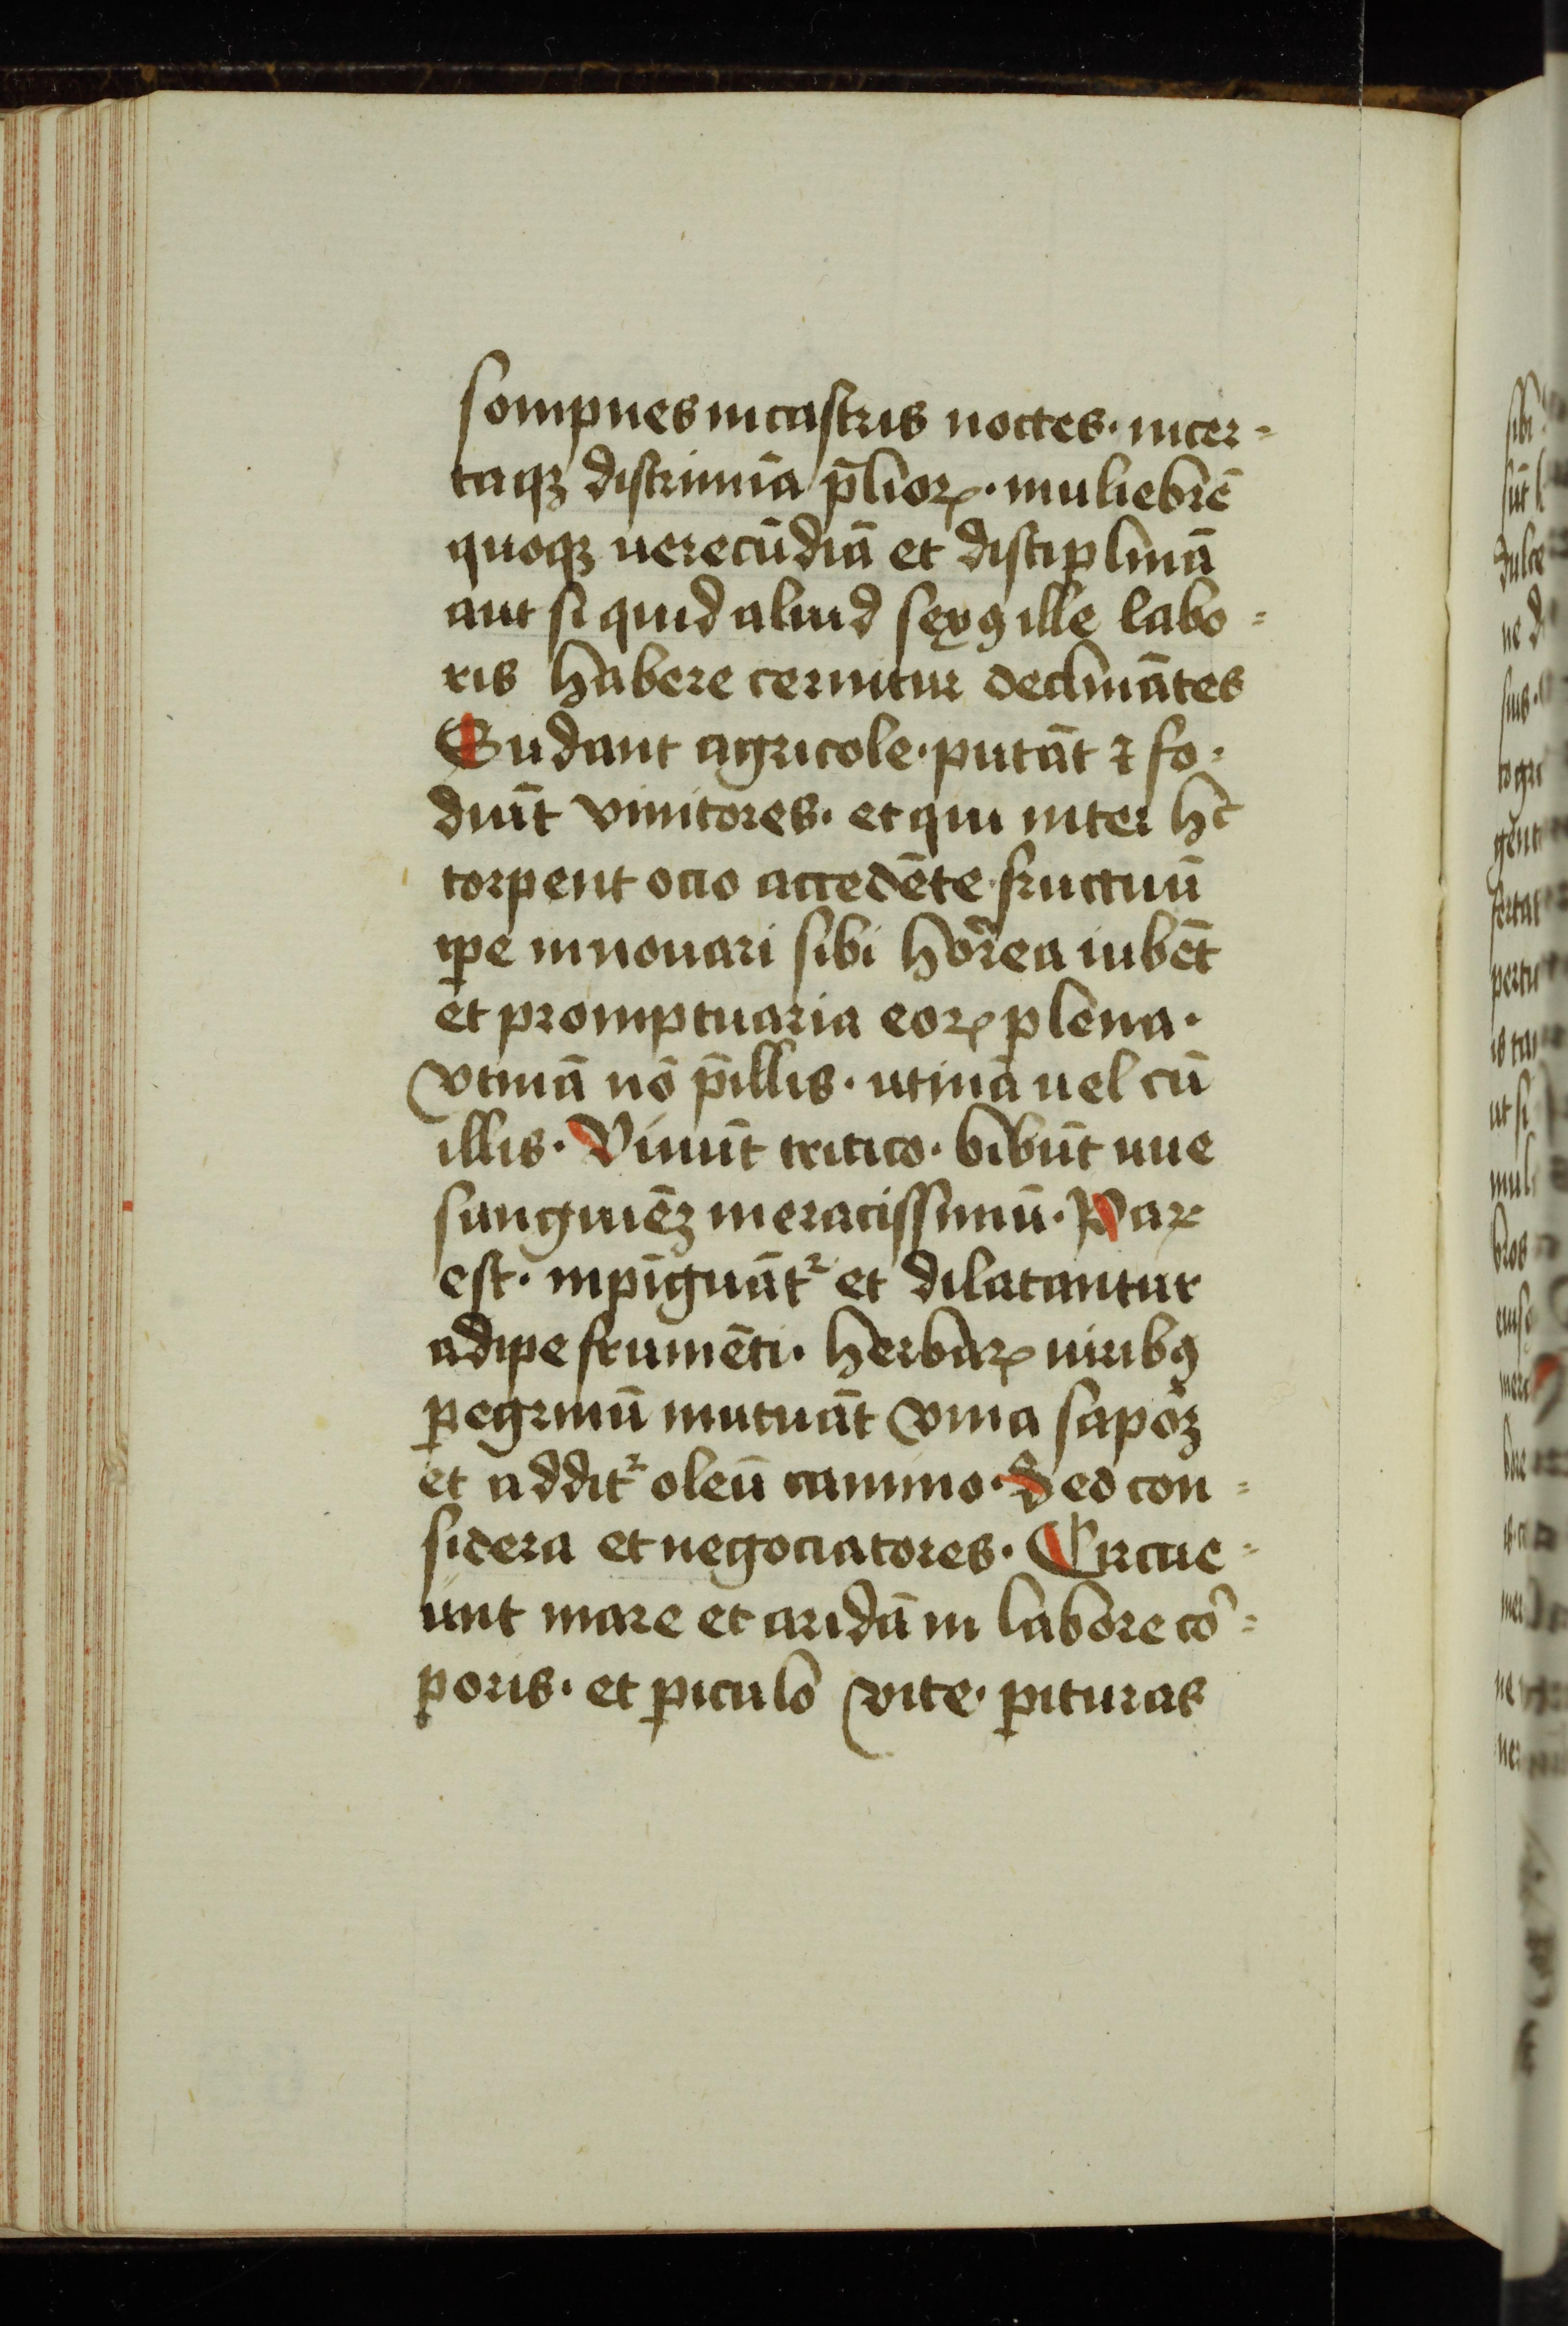 sompnes in castris noctes · incer⸗
taqꝫ discrimīa p̄lioꝝ · muliebrē
quoqꝫ uerecūdiā et disciplinā
aut si quid aliud sexꝰ ille labo⸗
ris habere cernitur declinātes
Sudant agricole · putāt ⁊ fo⸗
diūt vinitores · et qui inter hͨ
torpent ocio accedēte fructuū
tp̄e innouari sibi horrea iubēt
et promptuaria eoꝝ plena ·
vtinā nō p̄ illis · utinā uel cū
illis · Viuūt tritico · bibūt uue
sanguinēꝫ meracissimū · Par
est · inpīguāt᷑ et dilatantur
adipe frumēti · herbaꝝ uiribꝰ
ꝑegrinū mutuāt vina sapoꝫ
et addit᷑ oleū camino · Sed con⸗
sidera et negociatores · Circue⸗
unt mare et aridā in labore co᷑⸗
poris · et ꝑiculo vite · ꝑituras